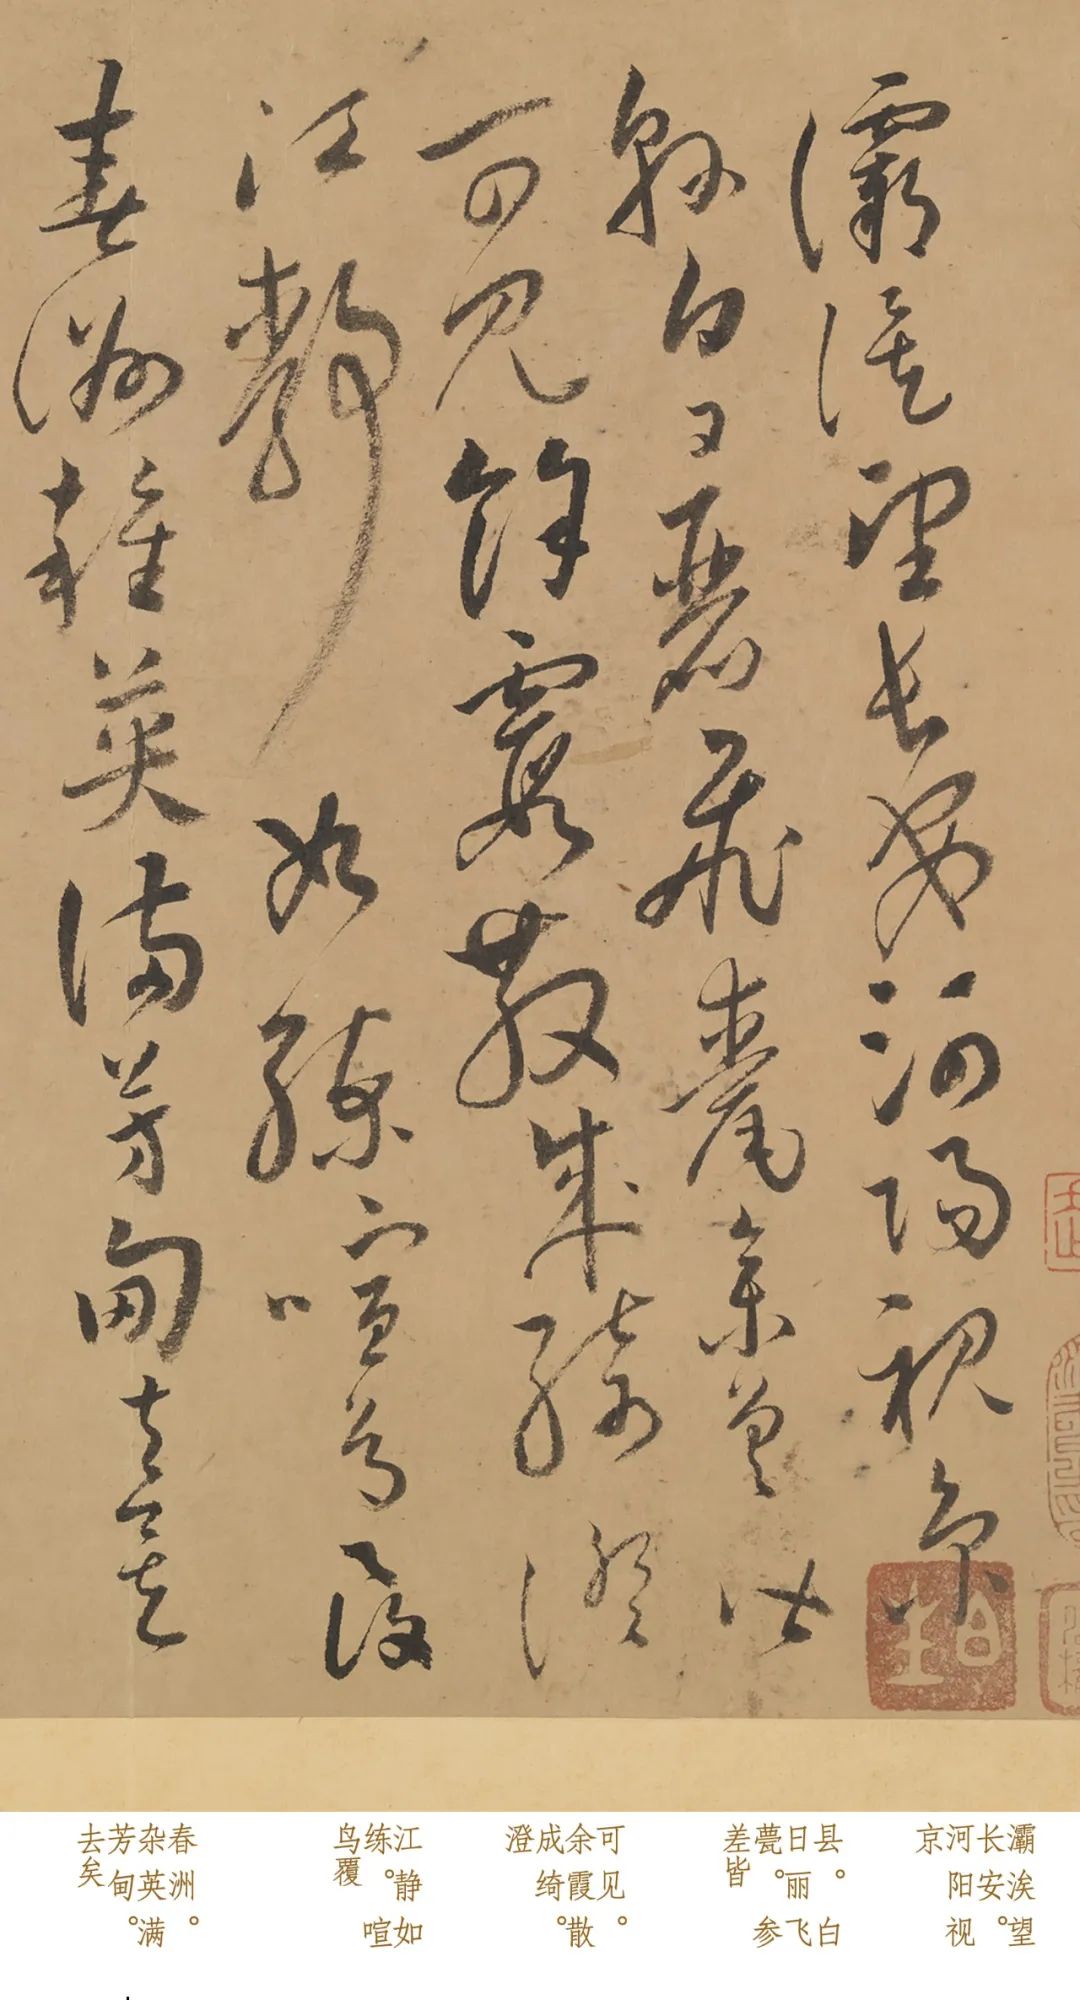 灞涘望長安河陽視京
縣白日麗飛甍參差皆
可見餘霞散成綺澄
江靜如練喧鳥覆
春洲雜英滿芳甸去矣
灞涘望
长安。
河阳视
京
县。白
日丽飞
甍。参
差皆
可见。
余霞散
成绮。
澄
江静如
练。喧
鸟覆
春洲。
杂英满
芳甸。
去矣